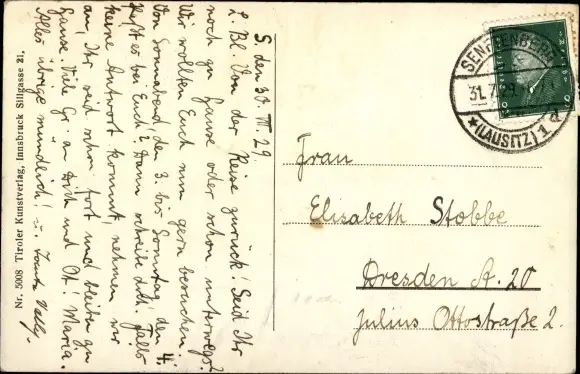 S. den 30. VII. 29.
L. Bl. Von der Reise zurück! Seid Ihr
noch zu Hause oder schon unterwegs?
Wir wollten Euch nun gern besuchen.
Von Sonnabend, den 3. bis Sonntag, den 4.
Paßt es bei Euch? Dann schreibe bald. Falls
keine Antwort kommt, nehmen wir
an, Ihr seid schon fort und bleiben zu
Hause. Viele Gr. an Dich und Ot! Maria.
Alles übrige mündlich!
Nr. 5008 Tiroler Kunstverlag, Innsbruck Sillgasse 21.
SENFTENBERG
31.7.29
*(LAUSITZ) 1 d
Frau
Elisabeth Stobbe
Dresden A. 20
Julius Ottostraße 2.